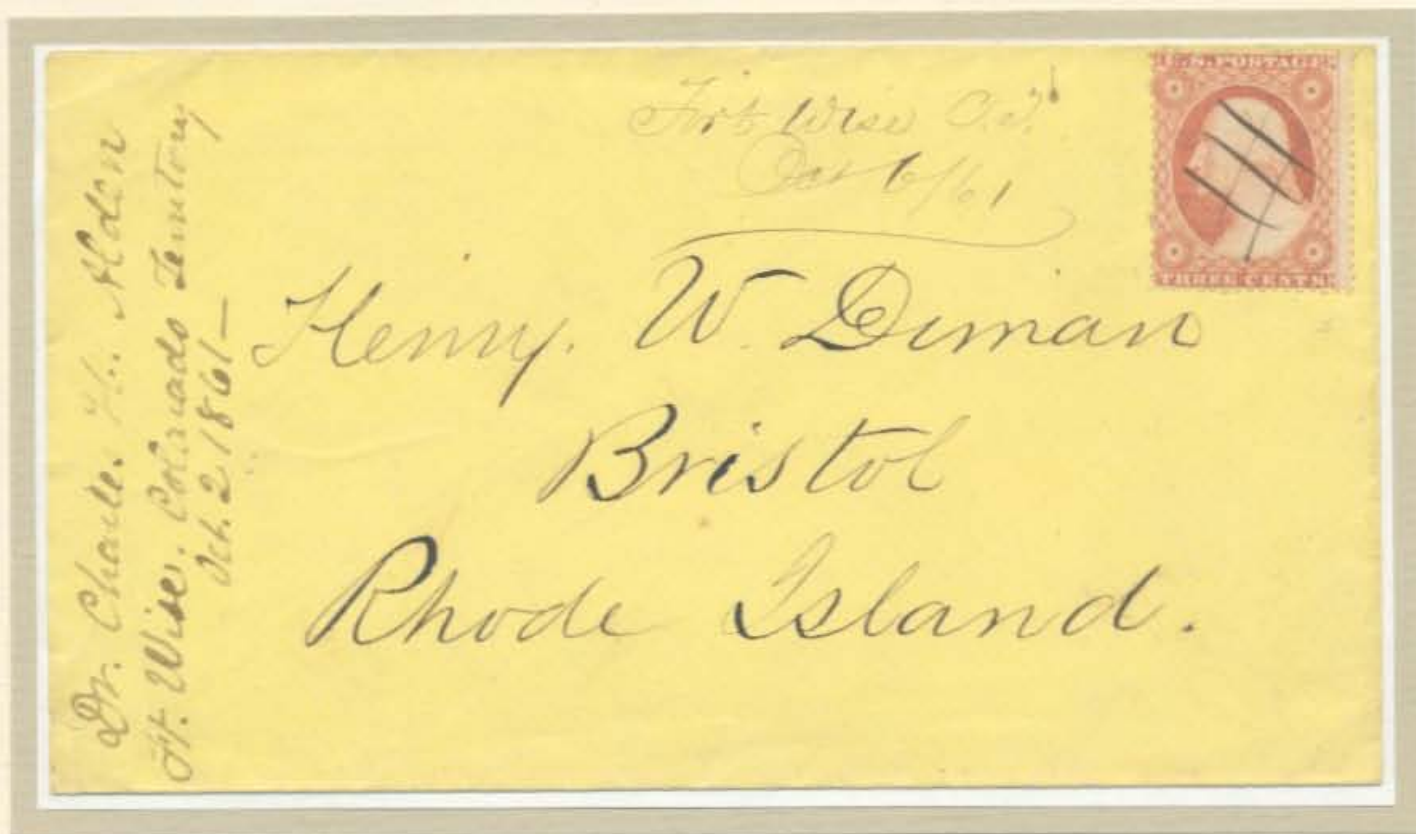 Dr. Charles H. Alden
Ft. Wise, Colorado Territory
Oct. 2 1861—
Fort Wise C.T.
Oct 6/61
U.S. POSTAGE
THREE CENTS
Henry. W. Diman
Bristol
Rhode Island.